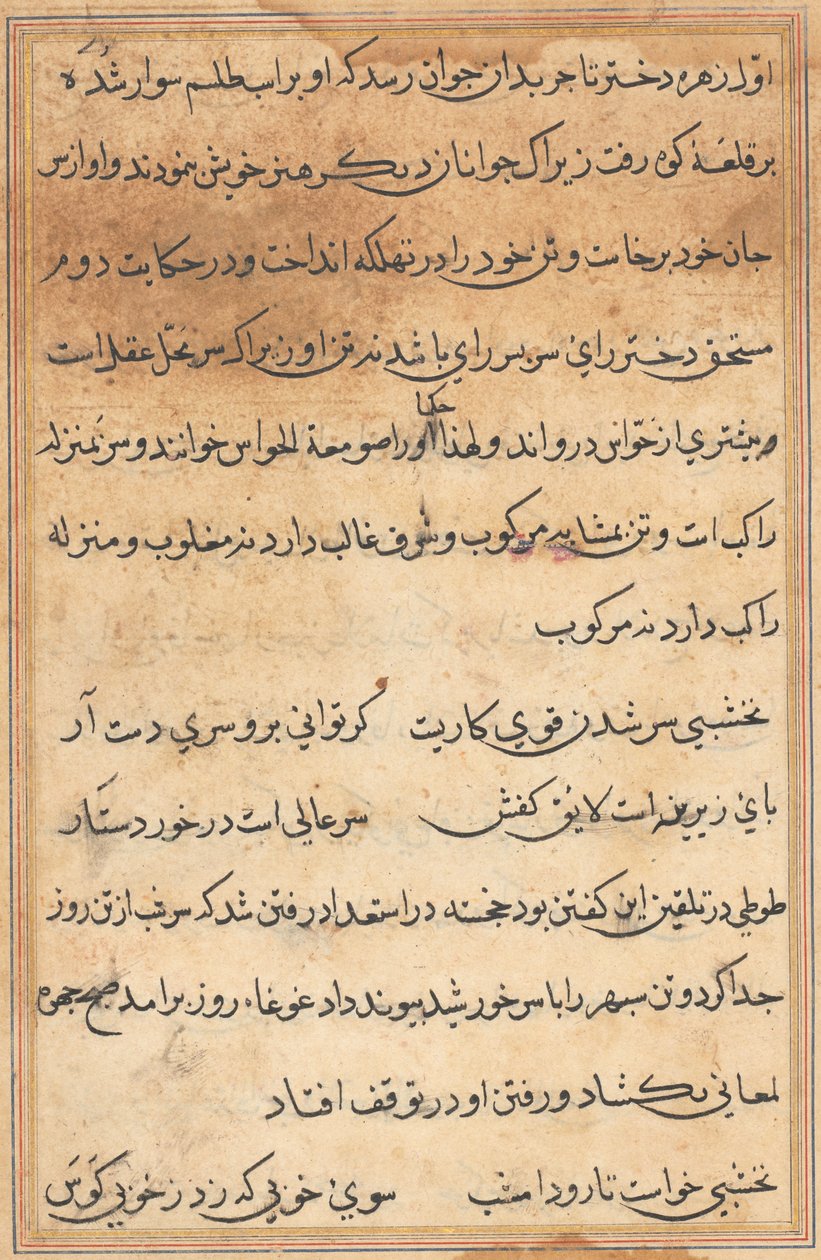 اوّل زهره دختر تاجر بدان جوان رسد که او بر اسب طلسم سوار شده
بر قلعۀ کوه رفت زیراک جوانان دیکر هنر خویش بنمودند و او از سر
جان خود برخاست و تن خود را در تهلکه انداخت و در حکایت دوم
مستحق دختر رای سر بسر رای باشد نه تن او زیراک سر محَلّ عقل است
و بیشتري از حوّاس درو اند و لهذا حکما او را صومعة الحواس خوانند و سر بمَنزله
راکب است و تن بمثابه مرکوب و شرف غالب دارد نه مغلوب و منزله
راکب دارد نه مرکوب
نخشبي سر شدن قوي کاریت کر تواني برو سري دست آر
باي زیرینه است لایٔق کفش سر عالي است در خور دستار
طوطي در تلقین این کفتن بود خجسته در استعداد رفتن شد که سر شب از تن روز
جدا کرد و تن سبهر را با سر خورشید بیوند داد غوغاء روز برامد صبح جهره
لمعاني بکشاد و رفتن او در توقف افتاد
نخشبي خواست تا رود امشب سوئ خوبي که زد ز خوبي کَوسَ